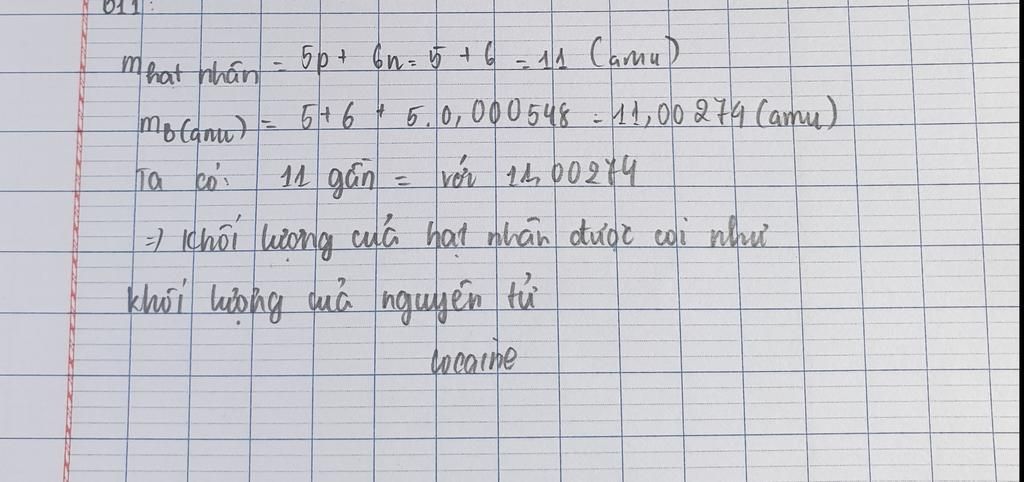 m hạt nhân = 5p + 6n = 5 + 6 = 11 (amu)
mB(amu) = 5+6 + 5.0,000548 = 11,00274 (amu)
Ta có: 11 gần = với 11,00274
=> Khối lượng của hạt nhân được coi như
khối lượng của nguyên tử
cocaine